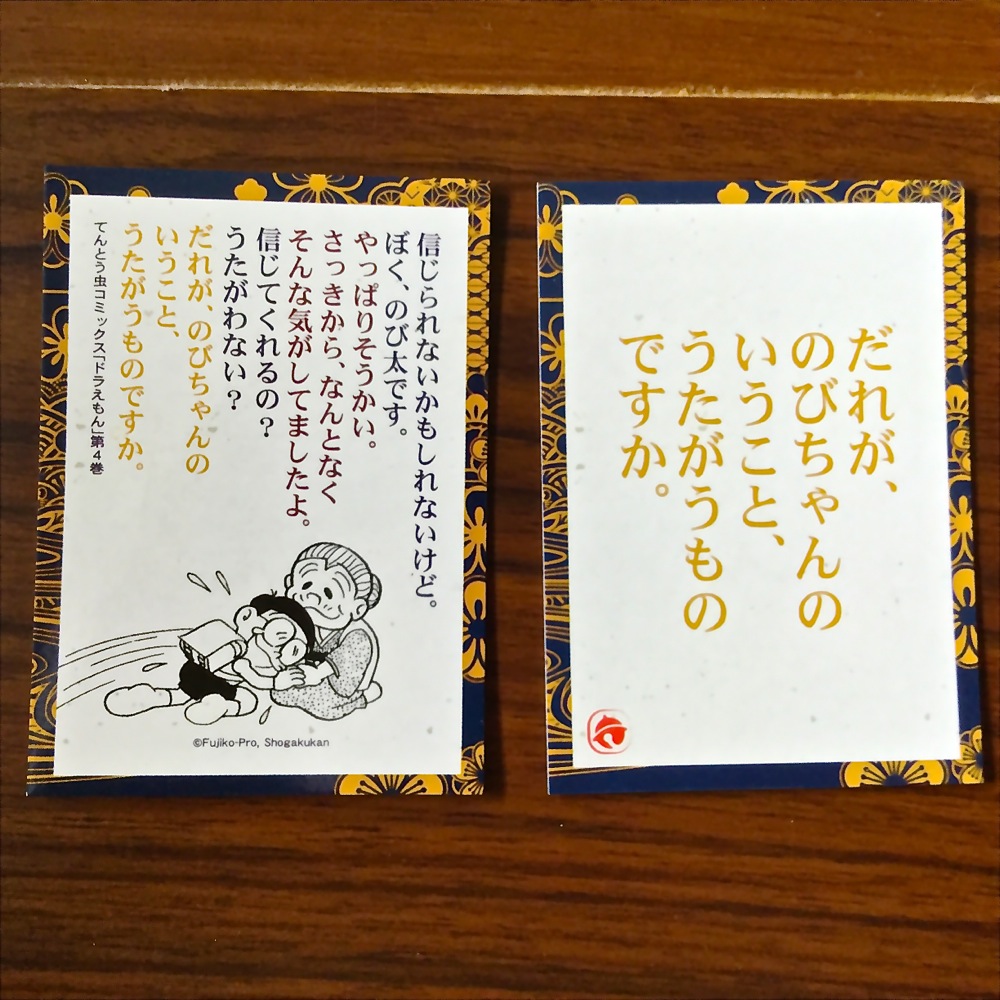 信じられないかもしれないけど。
ぼく、のび太です。
やっぱりそうかい。
さっきから、なんとなく
そんな気がしてましたよ。
信じてくれるの？
うたがわない？
だれが、のびちゃんの
いうこと、
うたがうものですか。
てんとう虫コミックス「ドラえもん」第4巻
©Fujiko-Pro, Shogakukan
だれが、
のびちゃんの
いうこと、
うたがうもの
ですか。